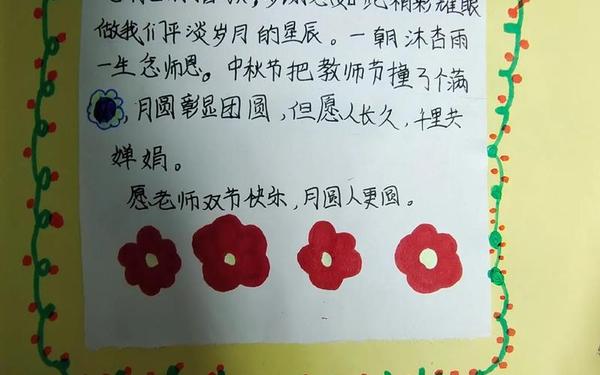 如此精彩耀眼
做我们平淡岁月的星辰。一朝沐杏雨
一生念师恩。中秋节把教师节撞了个满
,月圆彰显团圆,但愿人长久,千里共
婵娟。
愿老师双节快乐,月圆人更圆。